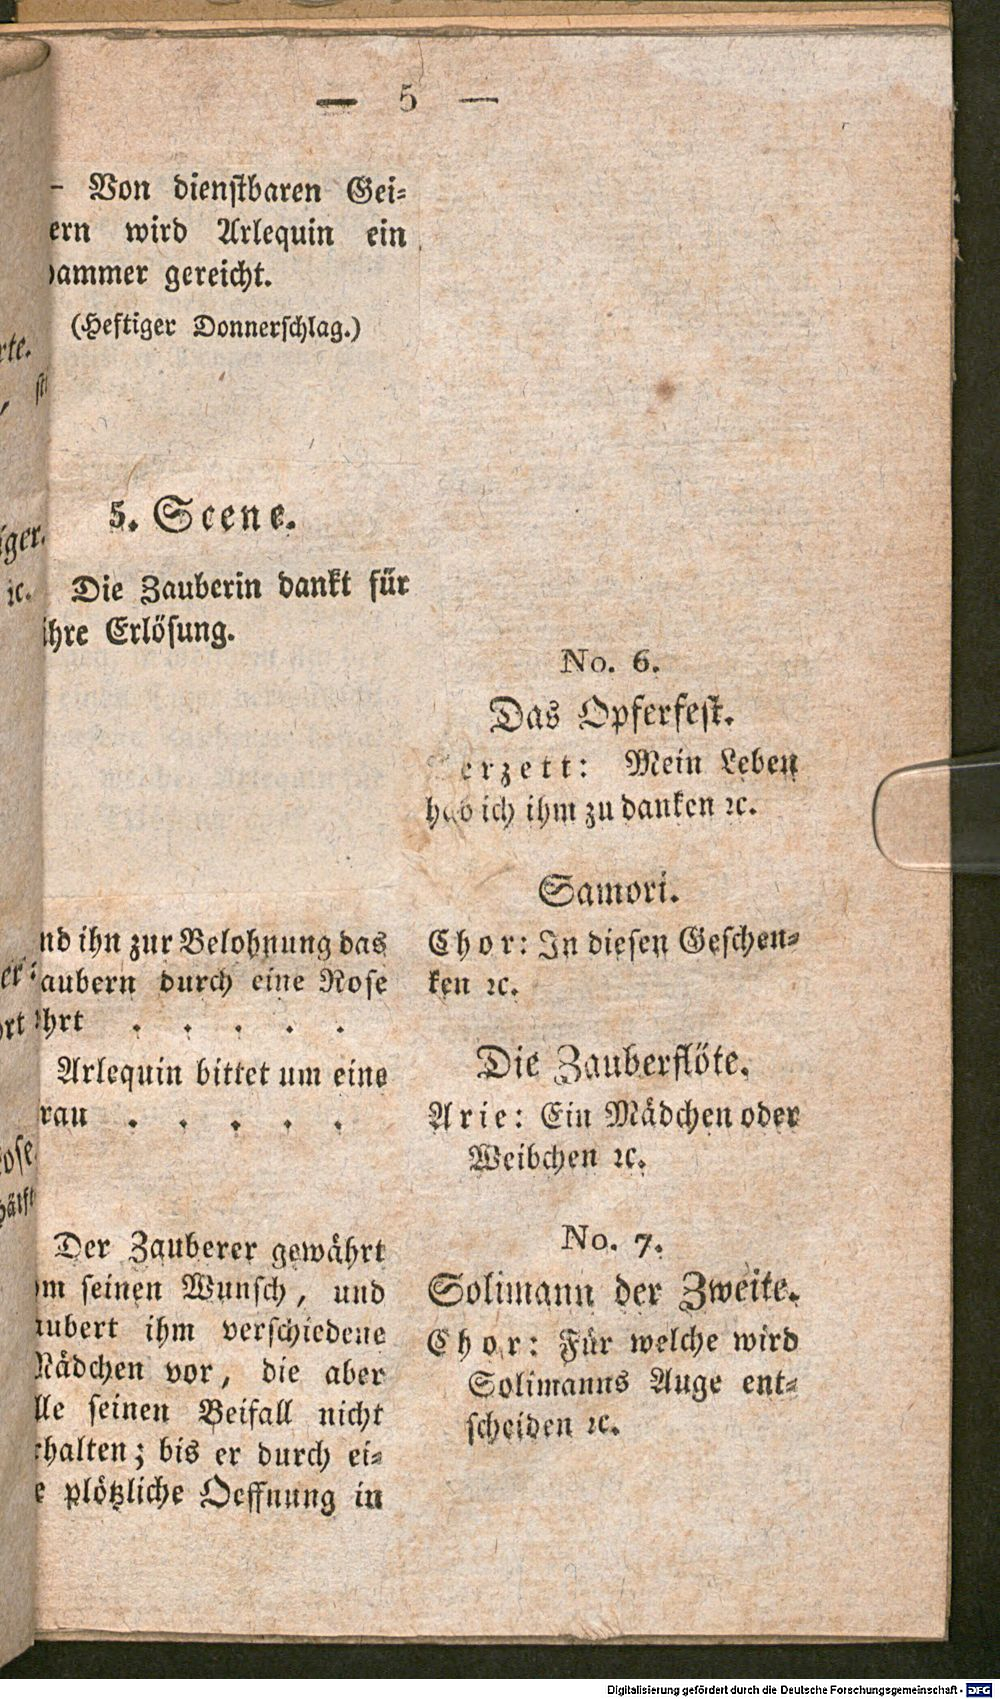 — 5 —
— Von dienstbaren Gei-
ern wird Arlequin ein
ammer gereicht.
(Heftiger Donnerschlag.)
5. Scene.
Die Zauberin dankt für
ihre Erlösung.
No. 6.
Das Opferfest.
erzett: Mein Leben
hab ich ihm zu danken ꝛc.
Samori.
nd ihn zur Belohnung das
aubern durch eine Rose
hrt . . . . .
Chor: In diesen Geschen-
ken ꝛc.
Arlequin bittet um eine
rau . . . . .
Die Zauberflöte.
Arie: Ein Mädchen oder
Weibchen ꝛc.
Der Zauberer gewährt
m seinen Wunsch, und
aubert ihm verschiedene
Mädchen vor, die aber
lle seinen Beifall nicht
rhalten; bis er durch ei-
e plötzliche Oeffnung in
No. 7.
Solimann der Zweite.
Chor: Für welche wird
Solimanns Auge ent-
scheiden ꝛc.
Digitalisierung gefördert durch die Deutsche Forschungsgemeinschaft - DFG